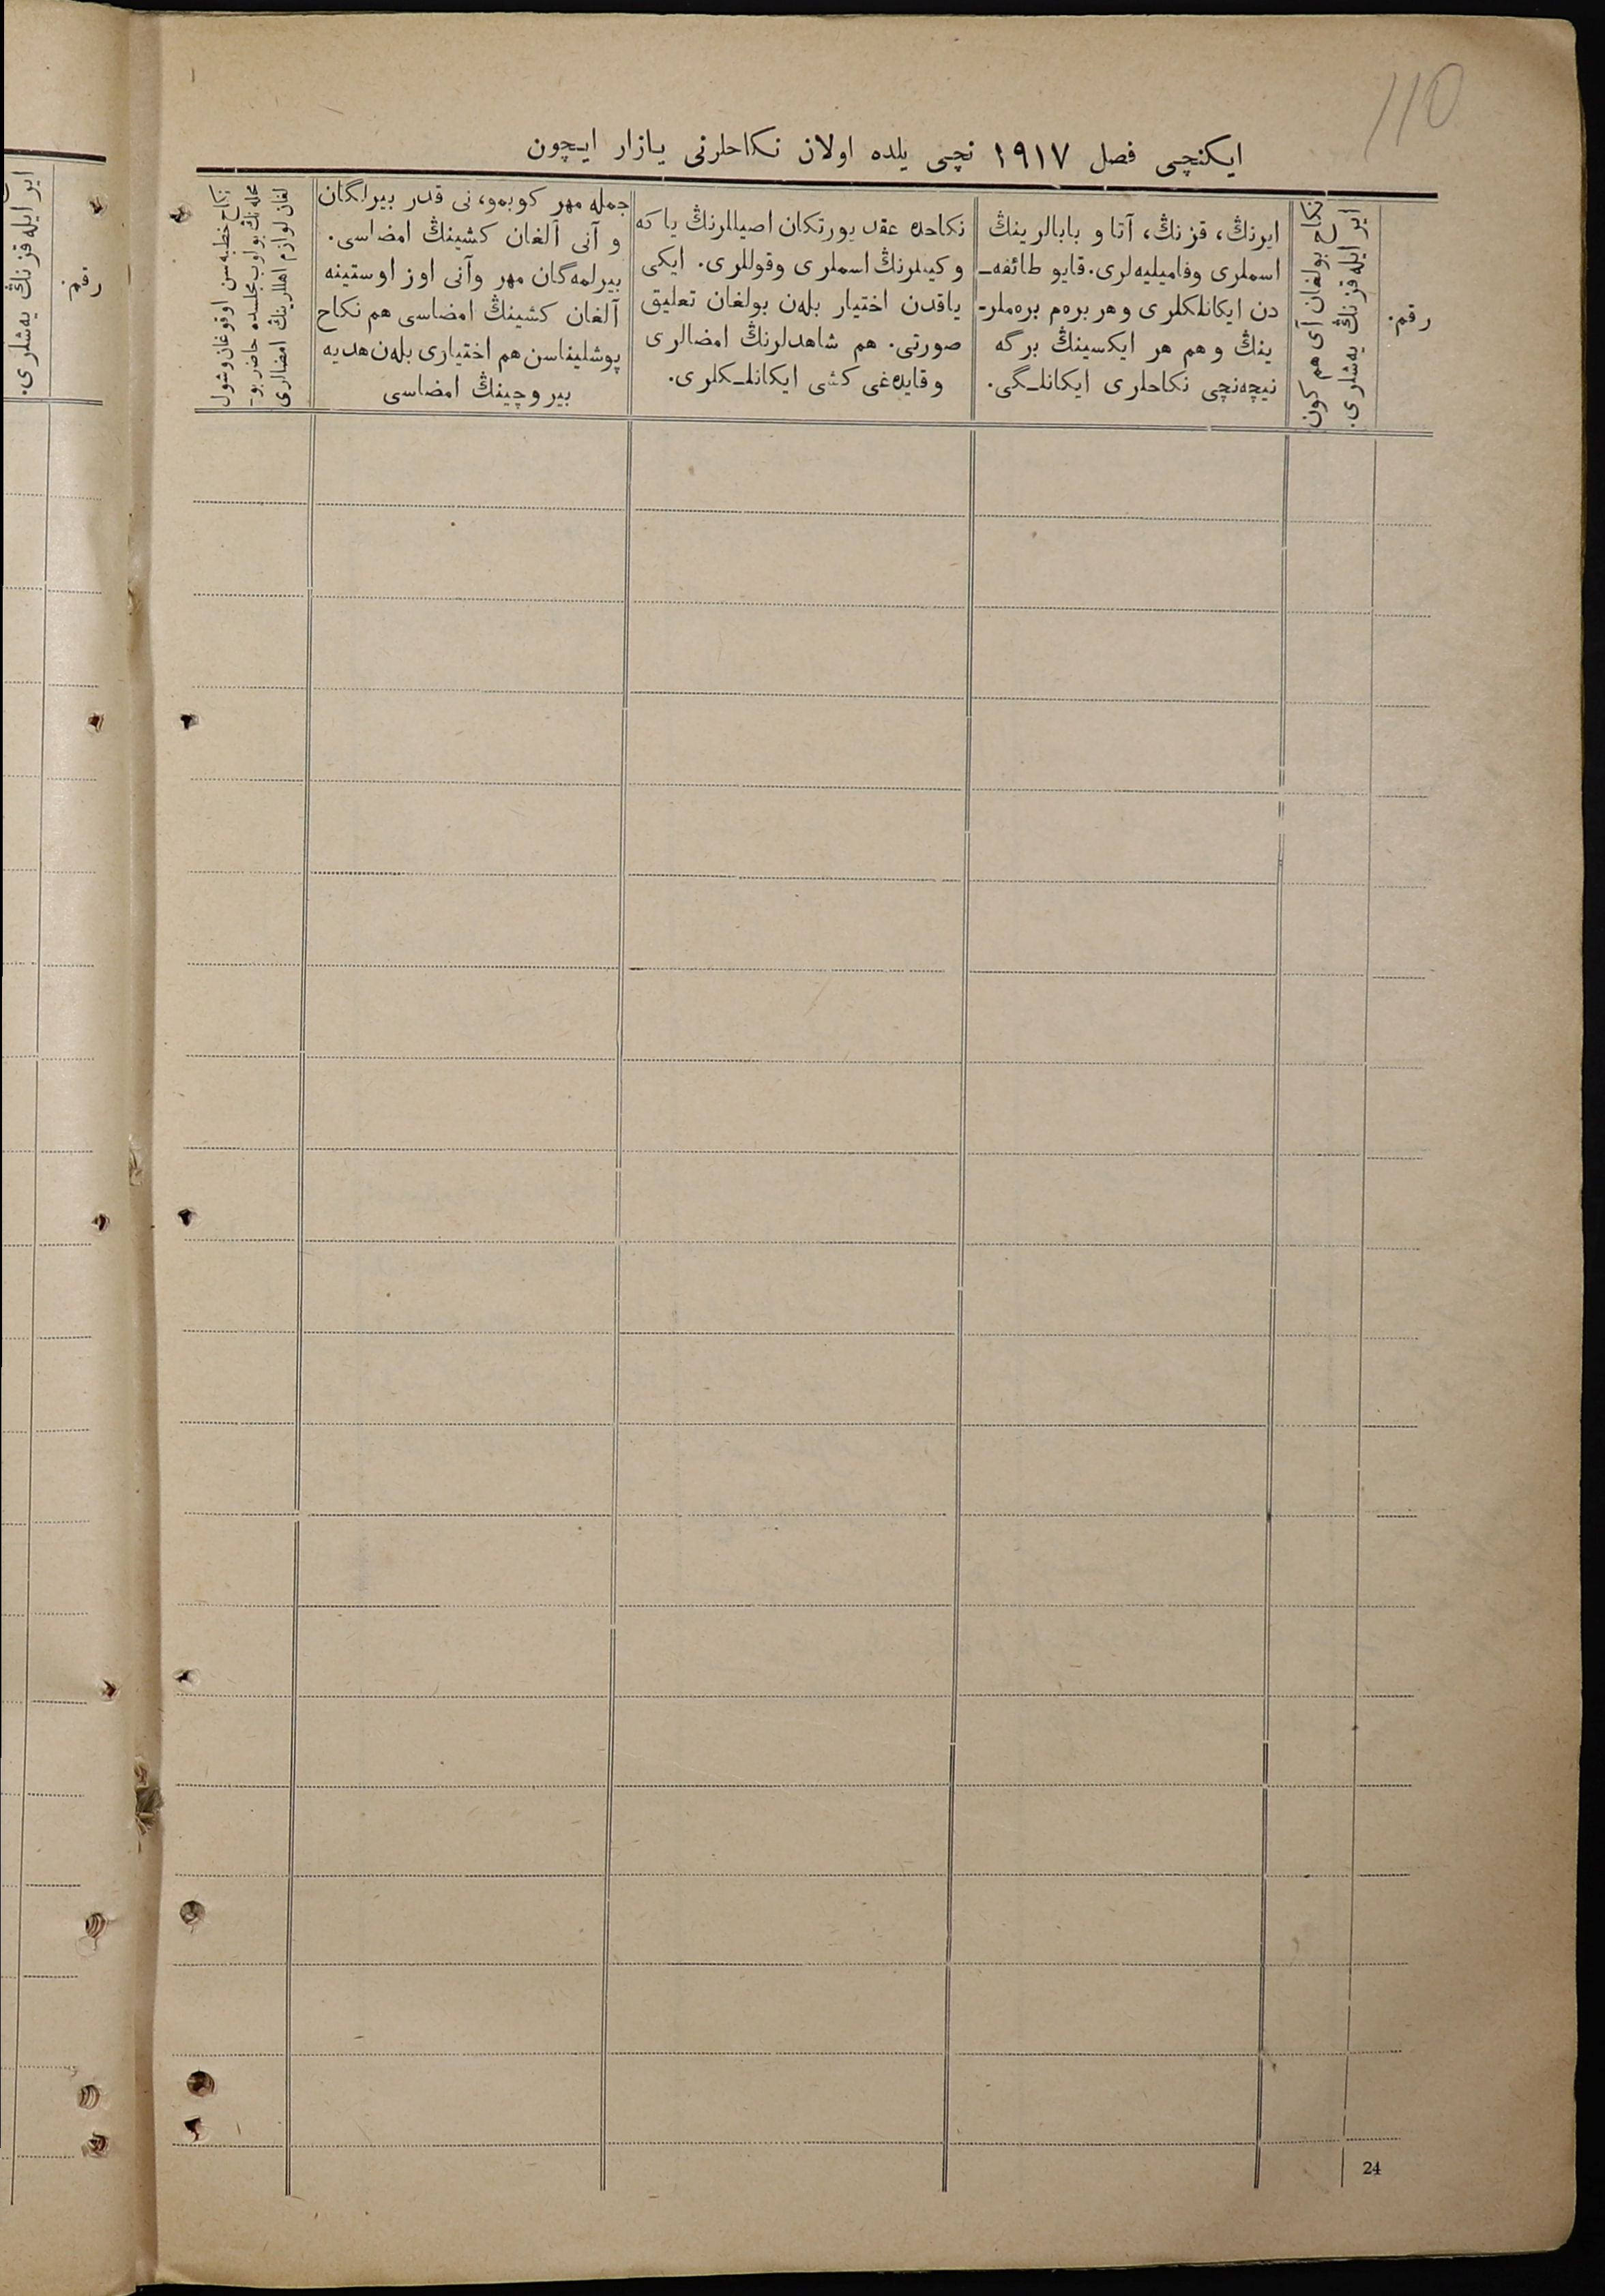 110
ایکنچی فصل ١٩١٧ نچی یلده اولان نکاحلرنی یازار ایچون
رقم.
ایر ایله قزنڭ یەشلری.
نکاح بولغان آی هم کون
ایرنڭ، قزنڭ، آتا و بابالرینڭ
اسملری وفامیلیەلری. قایو طائفه‌ـ
دن ایکانلکلری و هر برەم برەملرـ
ینڭ و هم هر ایکسینڭ برگه
نیچەنچی نکاحلری ایکانلـگی.
نکاحده عقد یورتکان اصیللرنڭ یاکه
وکیللرنڭ اسملری وقوللری. ایکی
یاقدن اختیار بلەن بولغان تعلیق
صورتی. هم شاهدلرنڭ امضالری
و قایدەغی کشی ایکانلـکلری.
جمله مهر کوبمو، نی قدر بیرلگان
و آنی آلغان کشینڭ امضاسی.
بیرلمەگان مهر وآنی اوز اوستینه
آلغان کشینڭ امضاسی هم نکاح
پوشلیناسن هم اختیاری بلەن هدیه
بیروچینڭ امضاسی
نکاح خطبەسن اوقوغان وشول
محلەنڭ بولوب مجلسده حاضر بوـ
لغان لوازم اهللرینڭ امضالری
رقم.
ایر ایله قزنڭ یەشلری.
24